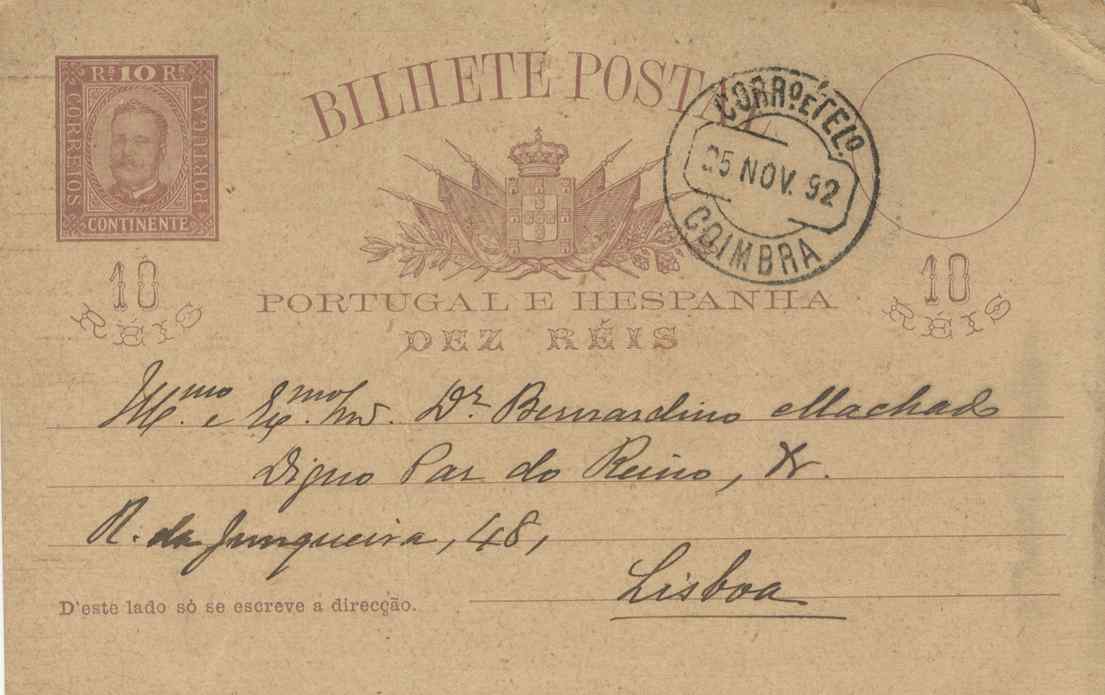 Rs 10 Rs
CORREIOS
PORTUGAL
CONTINENTE
BILHETE POSTAL
CORRO. E TELO.
25 NOV. 92
COIMBRA
10
RÉIS
10
RÉIS
PORTUGAL E HESPANHA
DEZ RÉIS
Ill.mo e Ex.mo Snr. Dr. Bernardino Machado
Digno Par do Reino, &.
R. da Junqueira, 48,
Lisboa
D'este lado só se escreve a direcção.